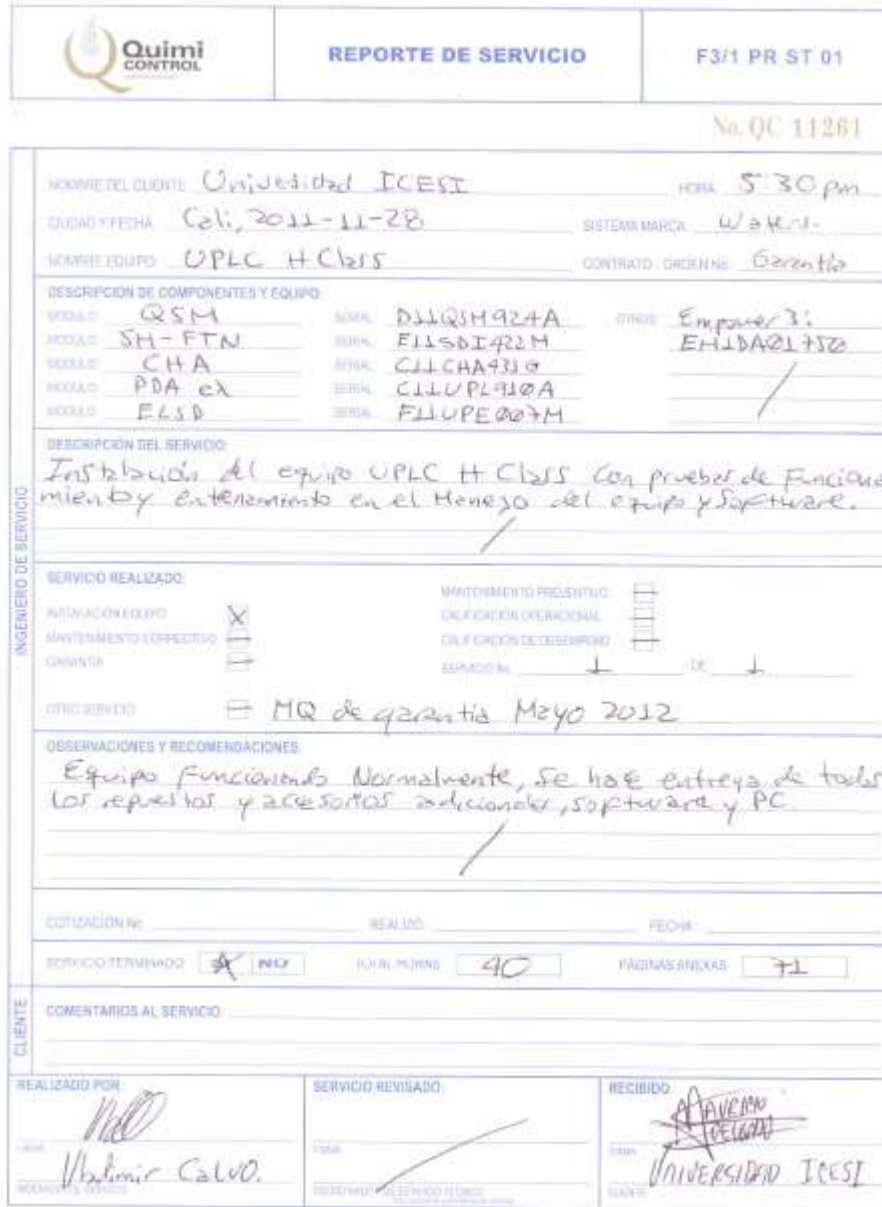 Quimi
CONTROL
REPORTE DE SERVICIO
F3/1 PR ST 01
No. QC 11261
NOMBRE DEL CLIENTE Universidad ICESI HORA 5:30 pm
CIUDAD Y FECHA Cali, 2011-11-28 SISTEMA MARCA Waters.
NOMBRE EQUIPO UPLC H Class CONTRATO - ORDEN No. Garantía
DESCRIPCIÓN DE COMPONENTES Y EQUIPO:
MODULO QSM SERIAL D11QSM924A OTROS Empower 3:
MODULO SM-FTN SERIAL F11SDI422M EM1DA01750
MODULO CHA SERIAL C11CHA431G
MODULO PDA eλ SERIAL C11UPL910A
MODULO ELSD SERIAL F11UPE007M
DESCRIPCIÓN DEL SERVICIO:
Instalación del equipo UPLC H Class con pruebas de Funciona
miento y entrenamiento en el Manejo del equipo y Software.
INGENIERO DE SERVICIO
SERVICIO REALIZADO:
MANTENIMIENTO PREVENTIVO
INSTALACIÓN EQUIPO X CALIFICACIÓN OPERACIONAL
MANTENIMIENTO CORRECTIVO CALIFICACIÓN DE DESEMPEÑO
GARANTÍA SERVICIO No. 1 DE 1
OTRO SERVICIO MQ de garantía Mayo 2012
OBSERVACIONES Y RECOMENDACIONES:
Equipo Funcionando Normalmente, Se hace entrega de todos
los repuestos y accesorios adicionales, software y PC
COTIZACIÓN No. REALIZÓ: FECHA:
SERVICIO TERMINADO NO TOTAL HORAS 40 PÁGINAS ANEXAS 71
CLIENTE
COMENTARIOS AL SERVICIO:
REALIZADO POR SERVICIO REVISADO: RECIBIDO:
MAURICIO
DELGADO
FIRMA FIRMA FIRMA
Vladimir Calvo. UNIVERSIDAD ICESI
INGENIERO DE SERVICIO CLIENTE